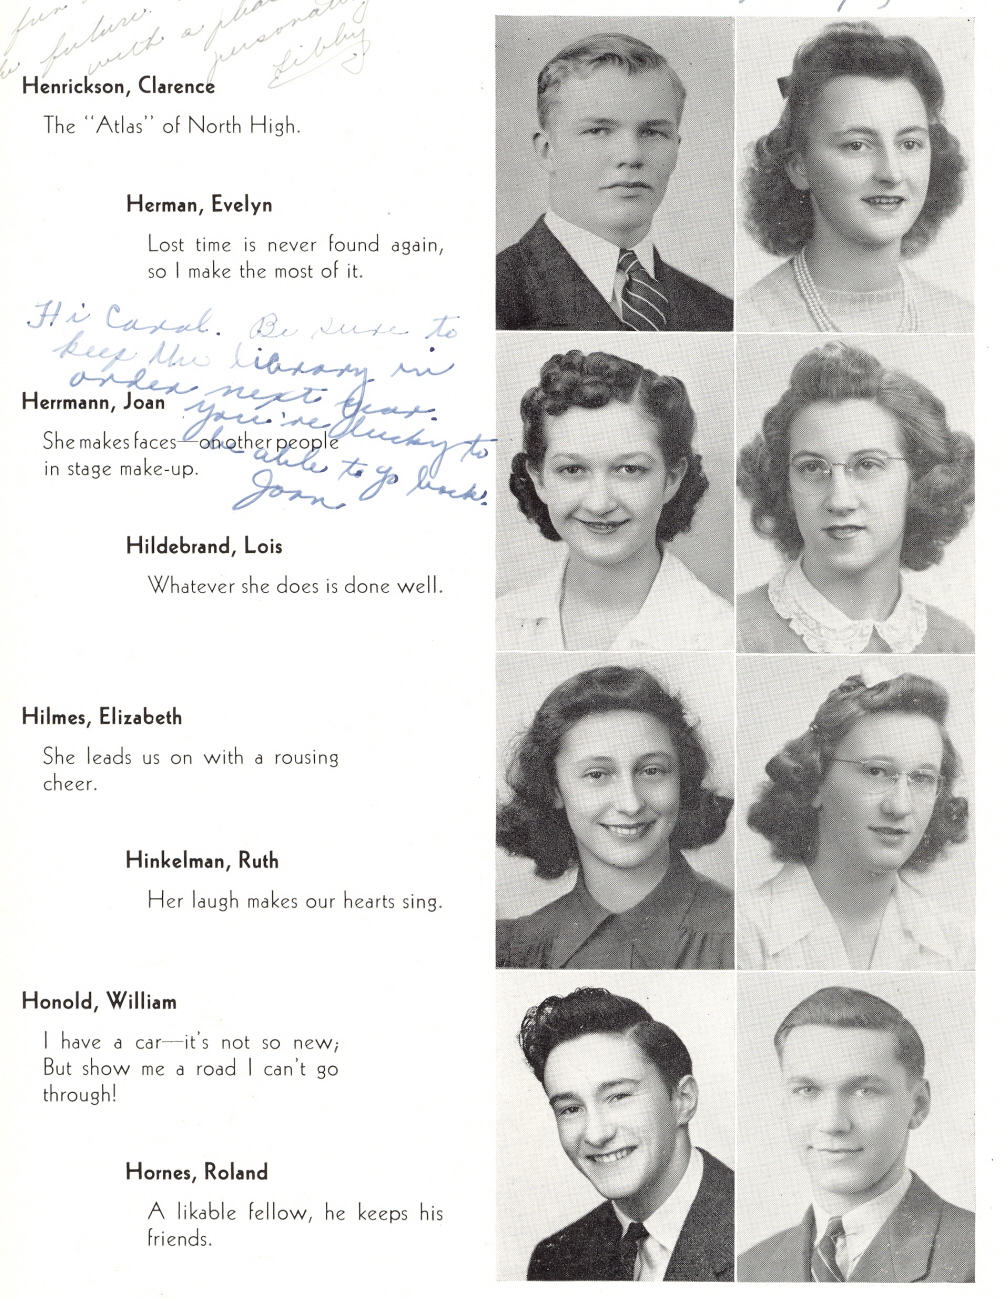 fun
future.
with a
personality
Libby
Henrickson, Clarence
The "Atlas" of North High.
Herman, Evelyn
Lost time is never found again,
so I make the most of it.
Hi Carol. Be sure to
keep the library in
order next year.
you're lucky to
be able to go back.
Joan
Herrmann, Joan
She makes faces—on other people
in stage make-up.
Hildebrand, Lois
Whatever she does is done well.
Hilmes, Elizabeth
She leads us on with a rousing
cheer.
Hinkelman, Ruth
Her laugh makes our hearts sing.
Honold, William
I have a car—it's not so new;
But show me a road I can't go
through!
Hornes, Roland
A likable fellow, he keeps his
friends.